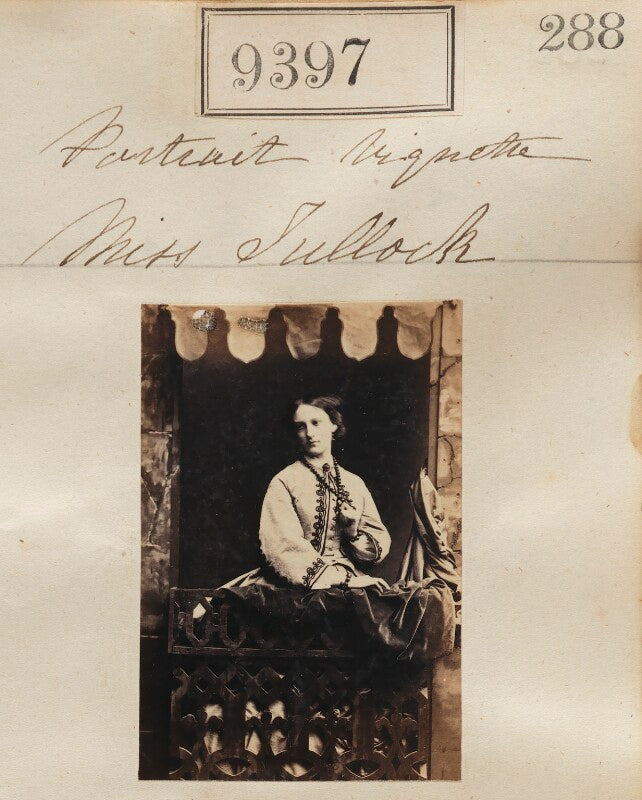 9397
288
Portrait Vignette
Miss Tullock